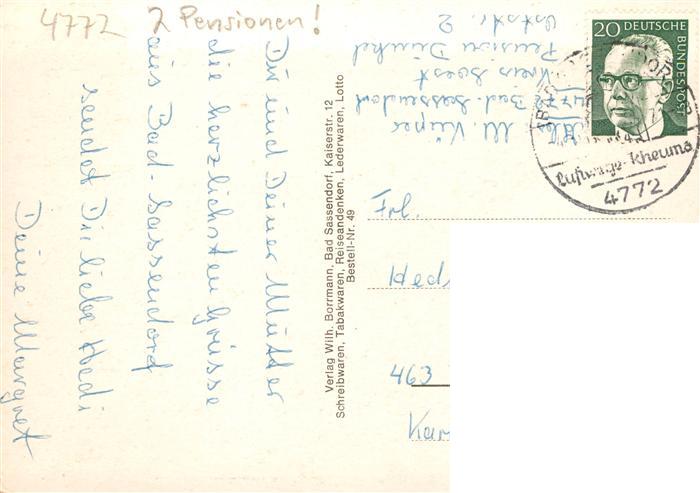 4772 2 Pensionen!
Dir und Deiner Mutter
die herzlichsten Grüsse
aus Bad-Sassendorf
sendet Dir liebe Hedi
Deine Margret
Verlag Wilh. Borrmann, Bad Sassendorf, Kaiserstr. 12
Schreibwaren, Tabakwaren, Reiseandenken, Lederwaren, Lotto
Bestell-Nr. 49
Abs. M. Küper
4772 Bad-Sassendorf
Kreis Soest
Pension Dünkel
str. 2
20 DEUTSCHE
BUNDESPOST
Rheuma
4772
Frl.
Hed
463
Kar